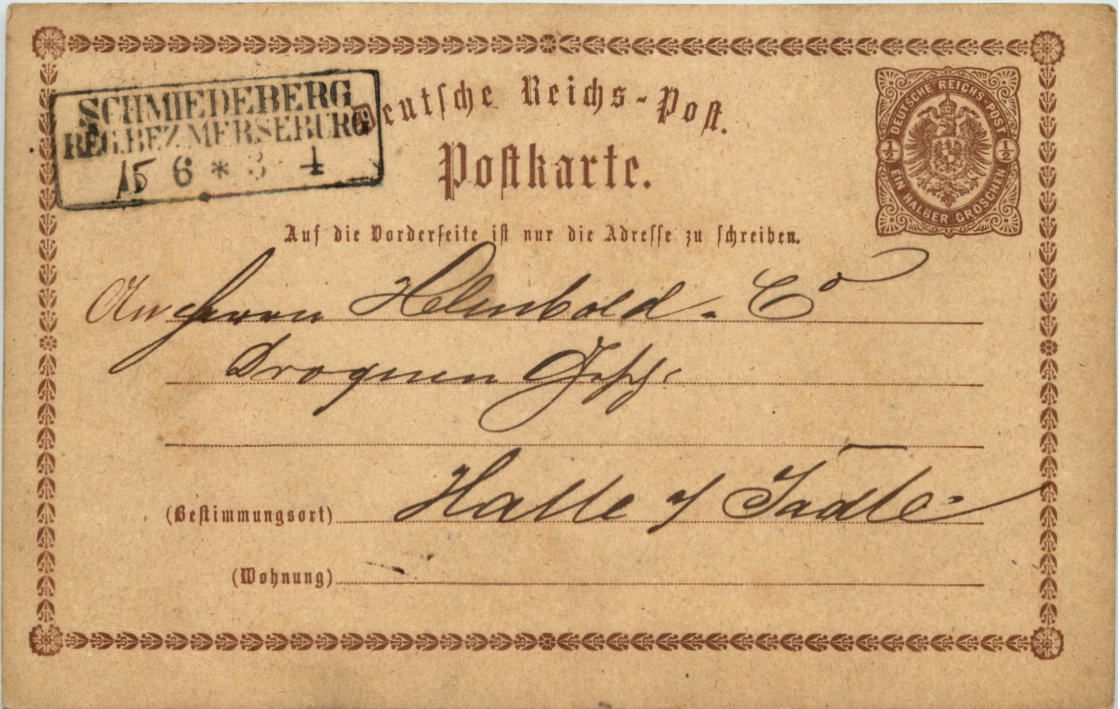 SCHMIEDEBERG
REG.BEZ.MERSEBURG
15 6 * 3 4
Deutsche Reichs-Post.
Postkarte.
DEUTSCHE REICHS-POST
½ ½
EIN HALBER GROSCHEN
Auf die Vorderseite ist nur die Adresse zu schreiben.
An Herrn Helmbold & Co
Droguen Gesch.
Halle a/ Saale
(Bestimmungsort)
(Wohnung)